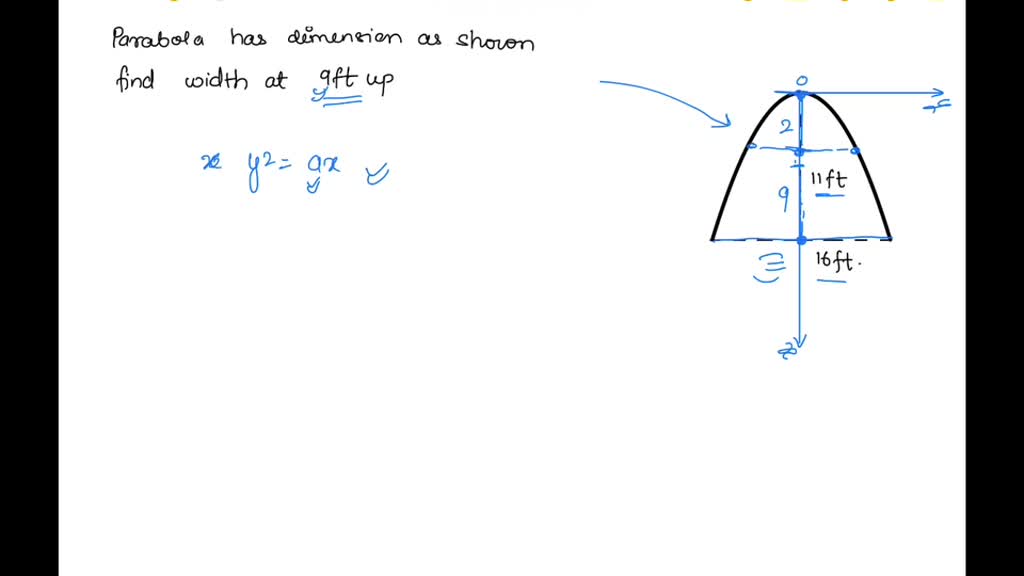 Parabola has dimension as shown
find width at 9ft up
y² = ax
0
2
11ft
9
16ft.